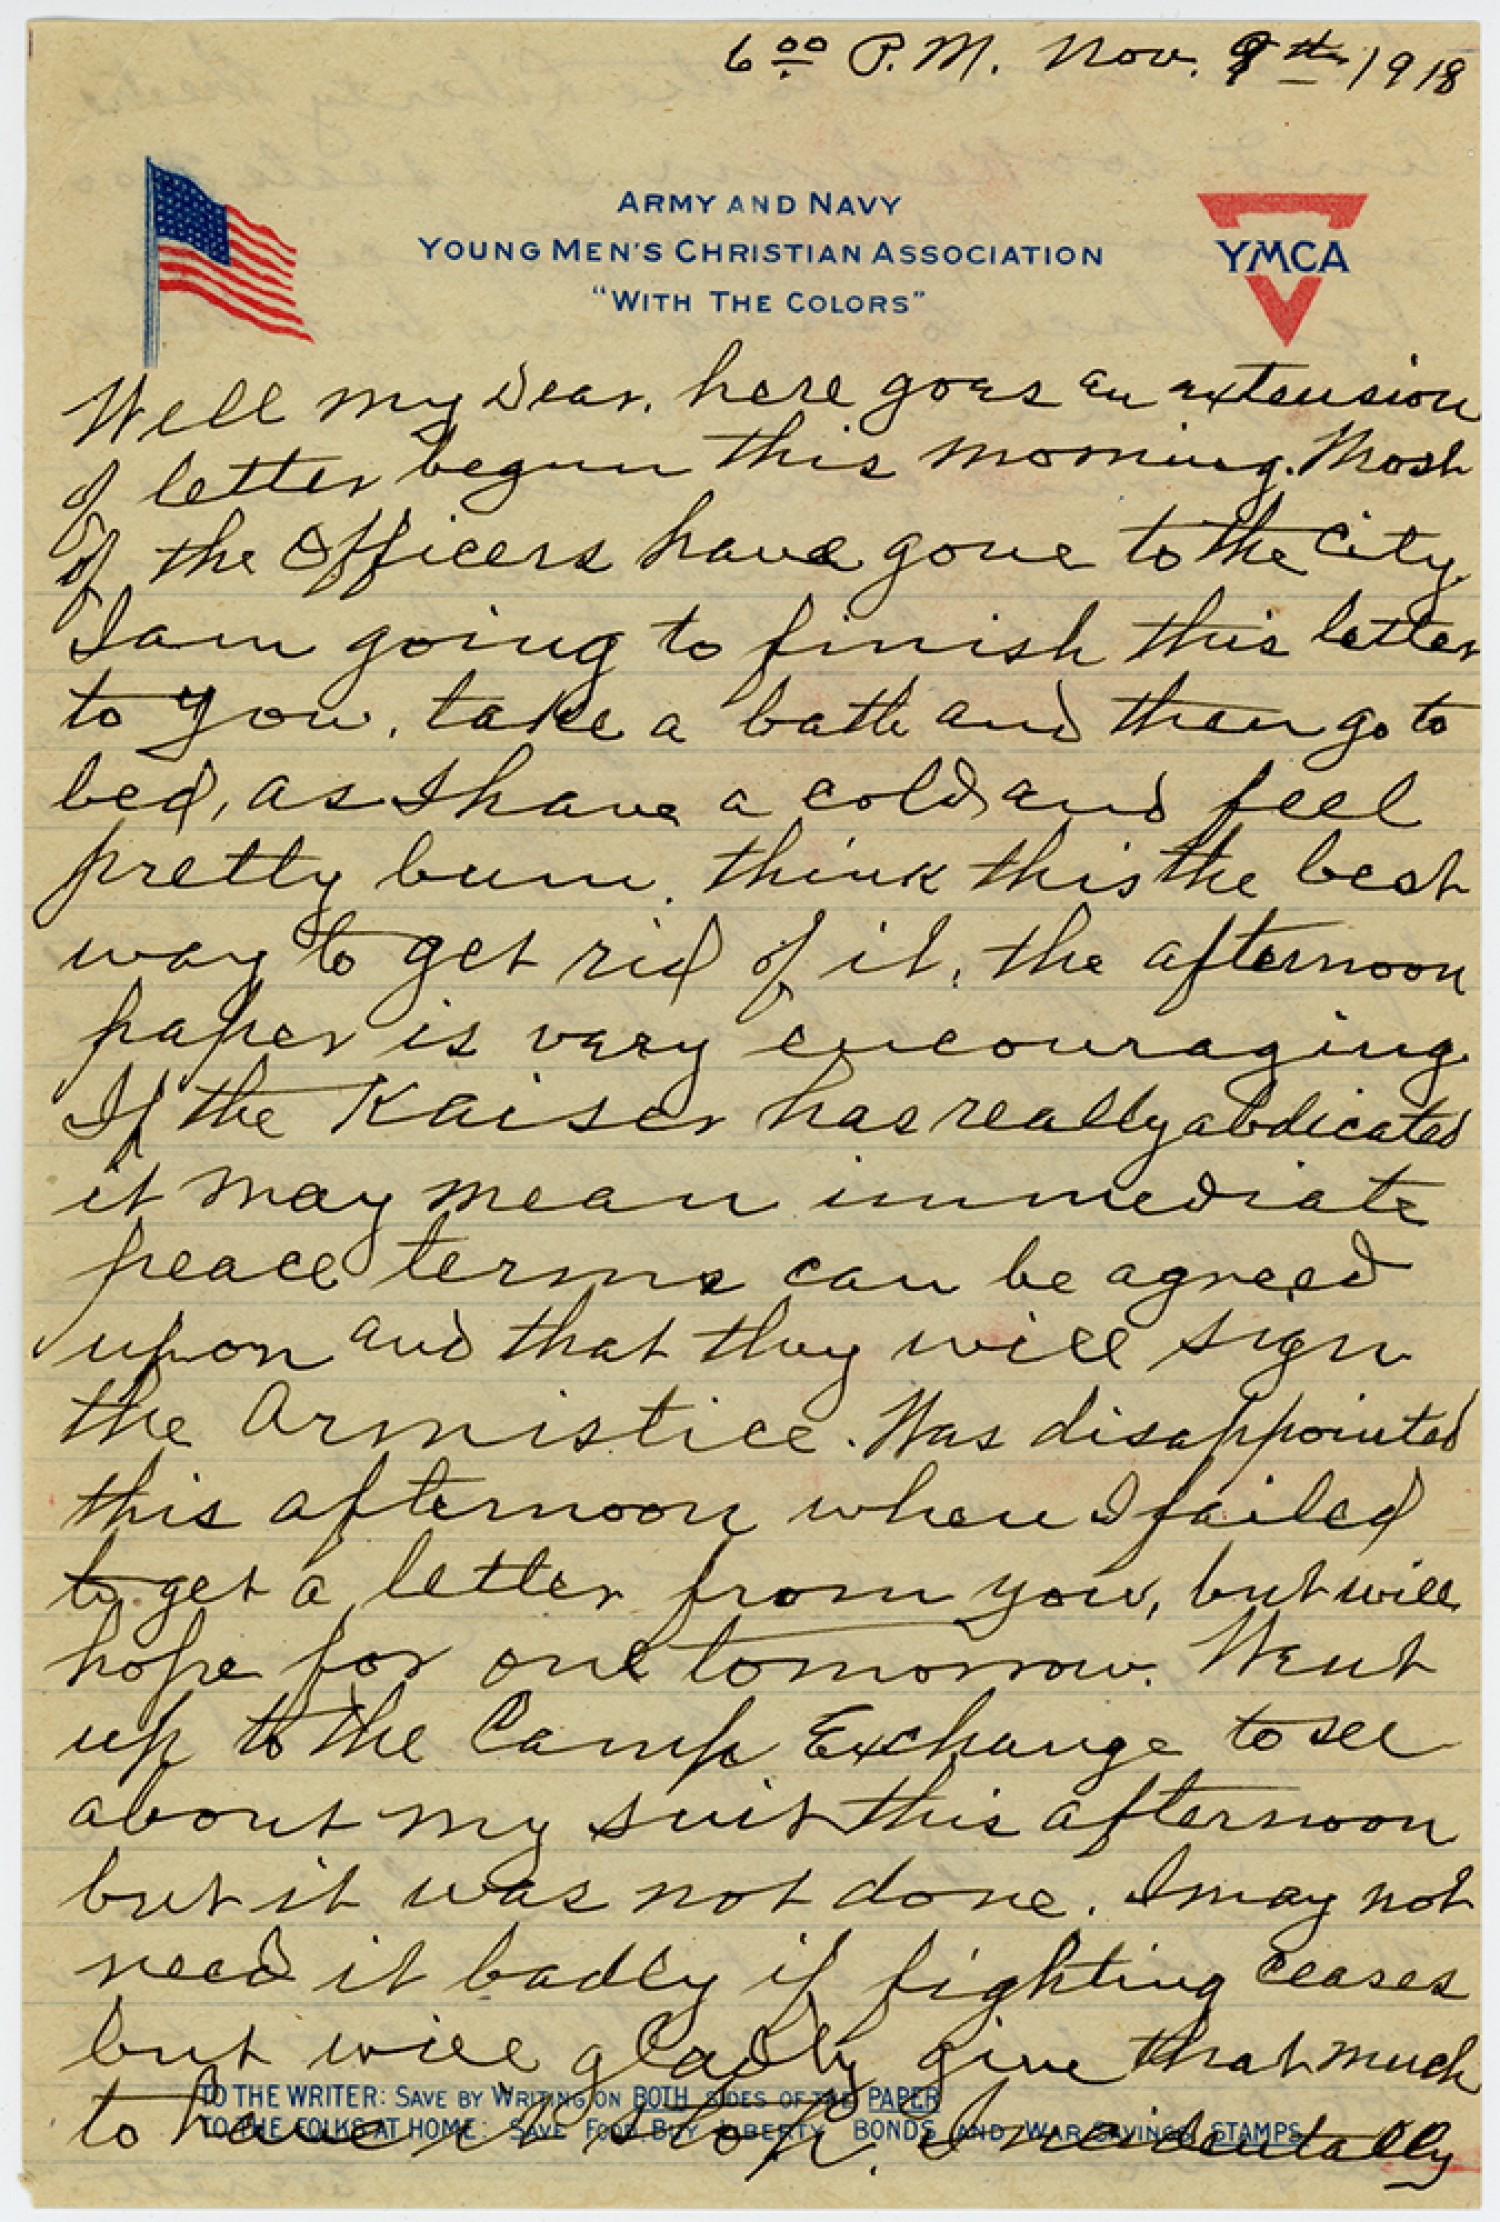 6 00 P.M. Nov. 9th 1918
ARMY AND NAVY
YOUNG MEN'S CHRISTIAN ASSOCIATION
"WITH THE COLORS"
YMCA
Well my Dear, here goes an extension
of letter begun this morning. Most
of the Officers have gone to the City.
I am going to finish this letter
to you, take a bath and then go to
bed, as I have a cold and feel
pretty bum. think this the best
way to get rid of it. the afternoon
paper is very encouraging.
If the Kaiser has really abdicated
it may mean immediate
peace terms can be agreed
upon and that they will sign
the Armistice. Was disappointed
this afternoon when I failed
to get a letter from you, but will
hope for one tomorrow. Went
up to the Camp Exchange to see
about my suit this afternoon
but it was not done. I may not
need it badly if fighting ceases
but will gladly give that much
to have it stop. Incidentally
TO THE WRITER: SAVE BY WRITING ON BOTH SIDES OF THE PAPER
TO THE FOLKS AT HOME: SAVE FOOD, BUY LIBERTY BONDS AND WAR SAVINGS STAMPS